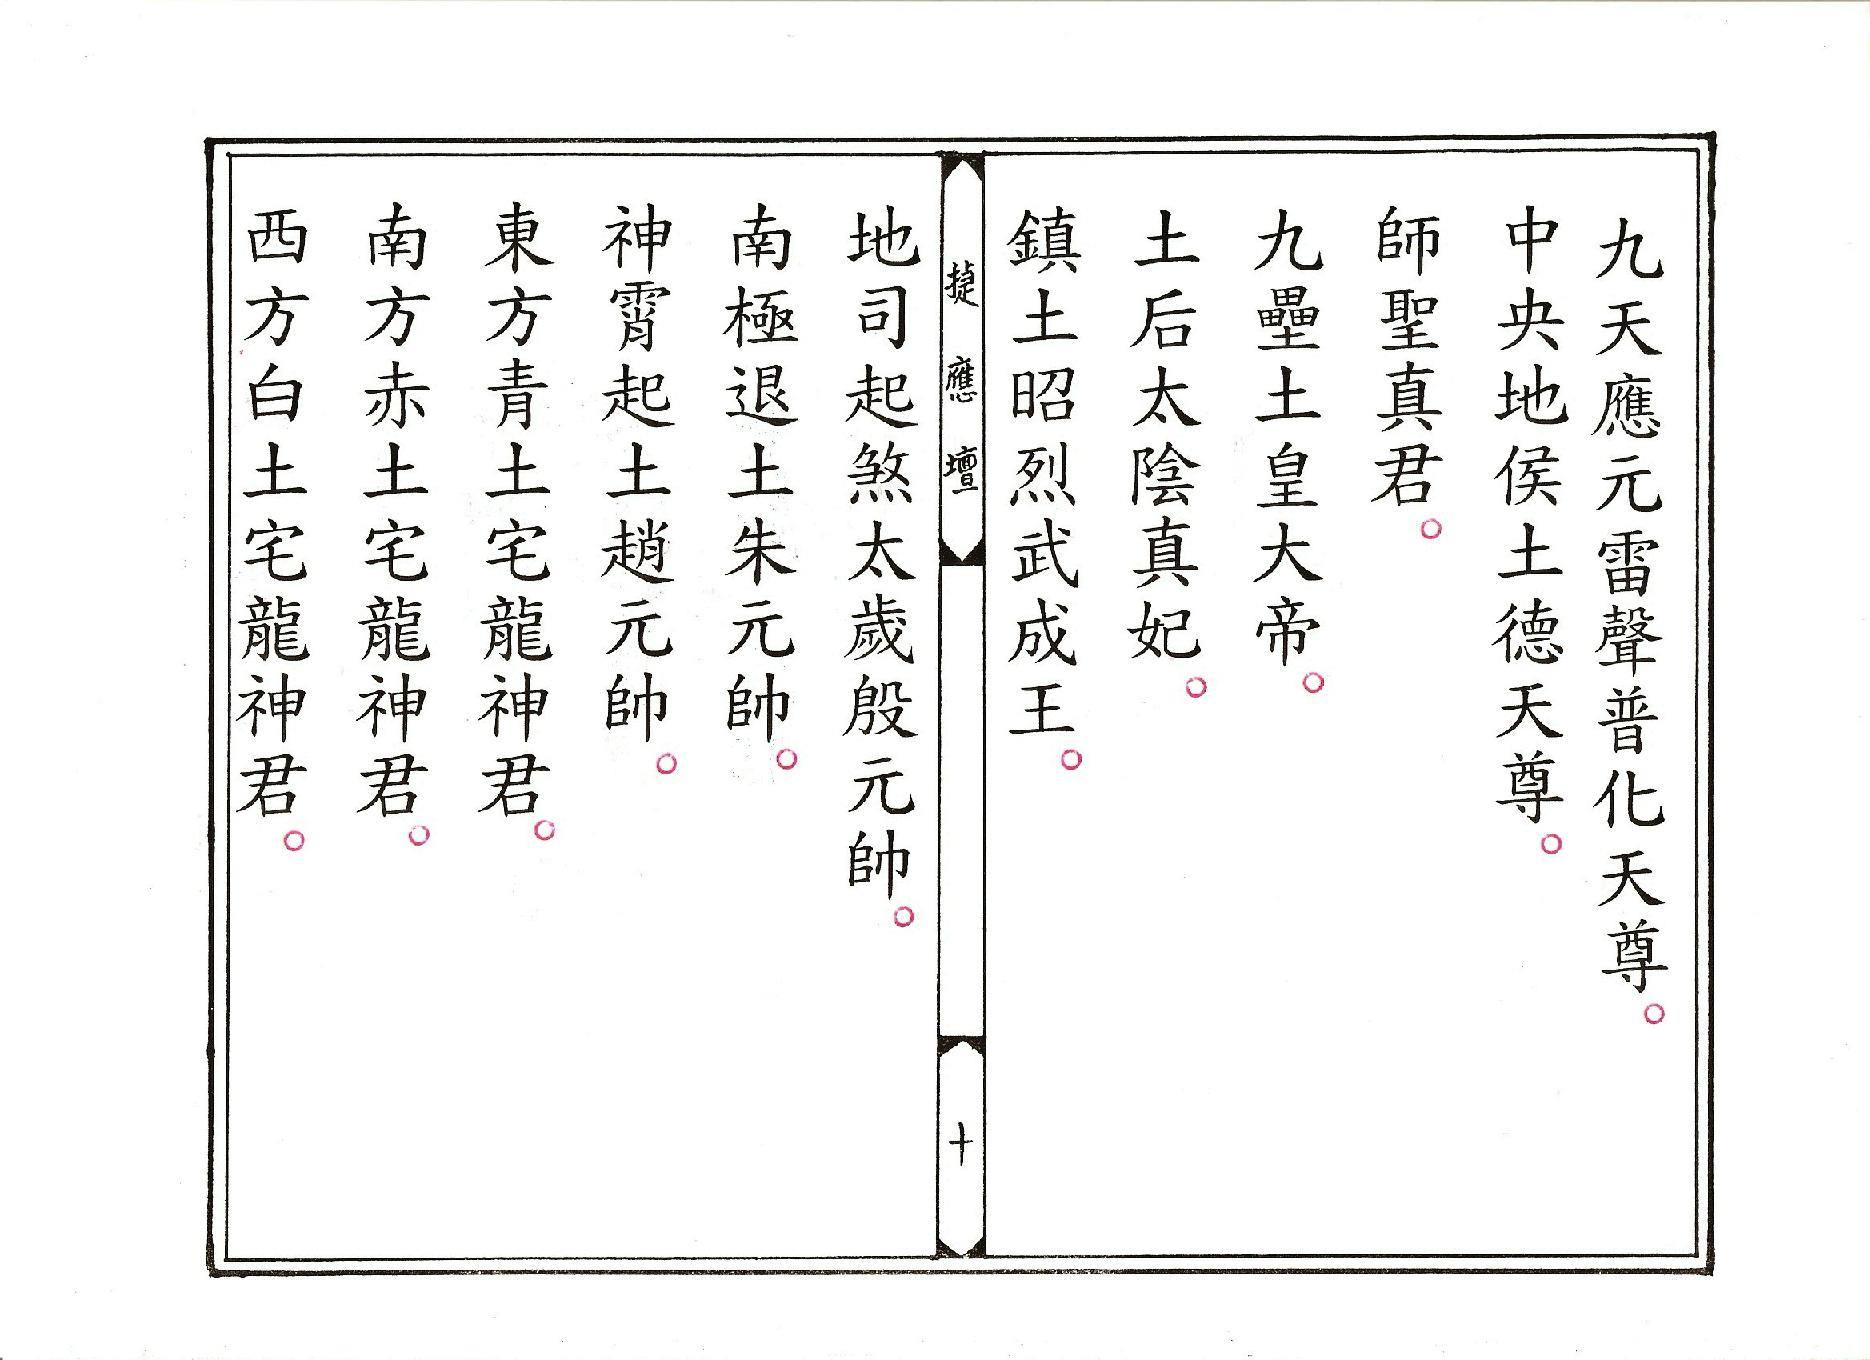 九天應元雷聲普化天尊。
中央地侯土德天尊。
師聖真君。
九壘土皇大帝。
土后太陰真妃。
鎮土昭烈武成王。
捷應壇
十
地司起煞太歲殷元帥。
南極退土朱元帥。
神霄起土趙元帥。
東方青土宅龍神君。
南方赤土宅龍神君。
西方白土宅龍神君。